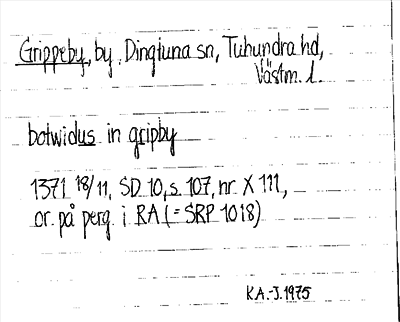 Grippeby, by, Dingtuna sn, Tuhundra hd,
Västm. l.
botwidus in gripby
1371 18/11, SD 10, s. 107, nr X 111,
or. på perg. i RA (= SRP 1018)
K.A.-J. 1975